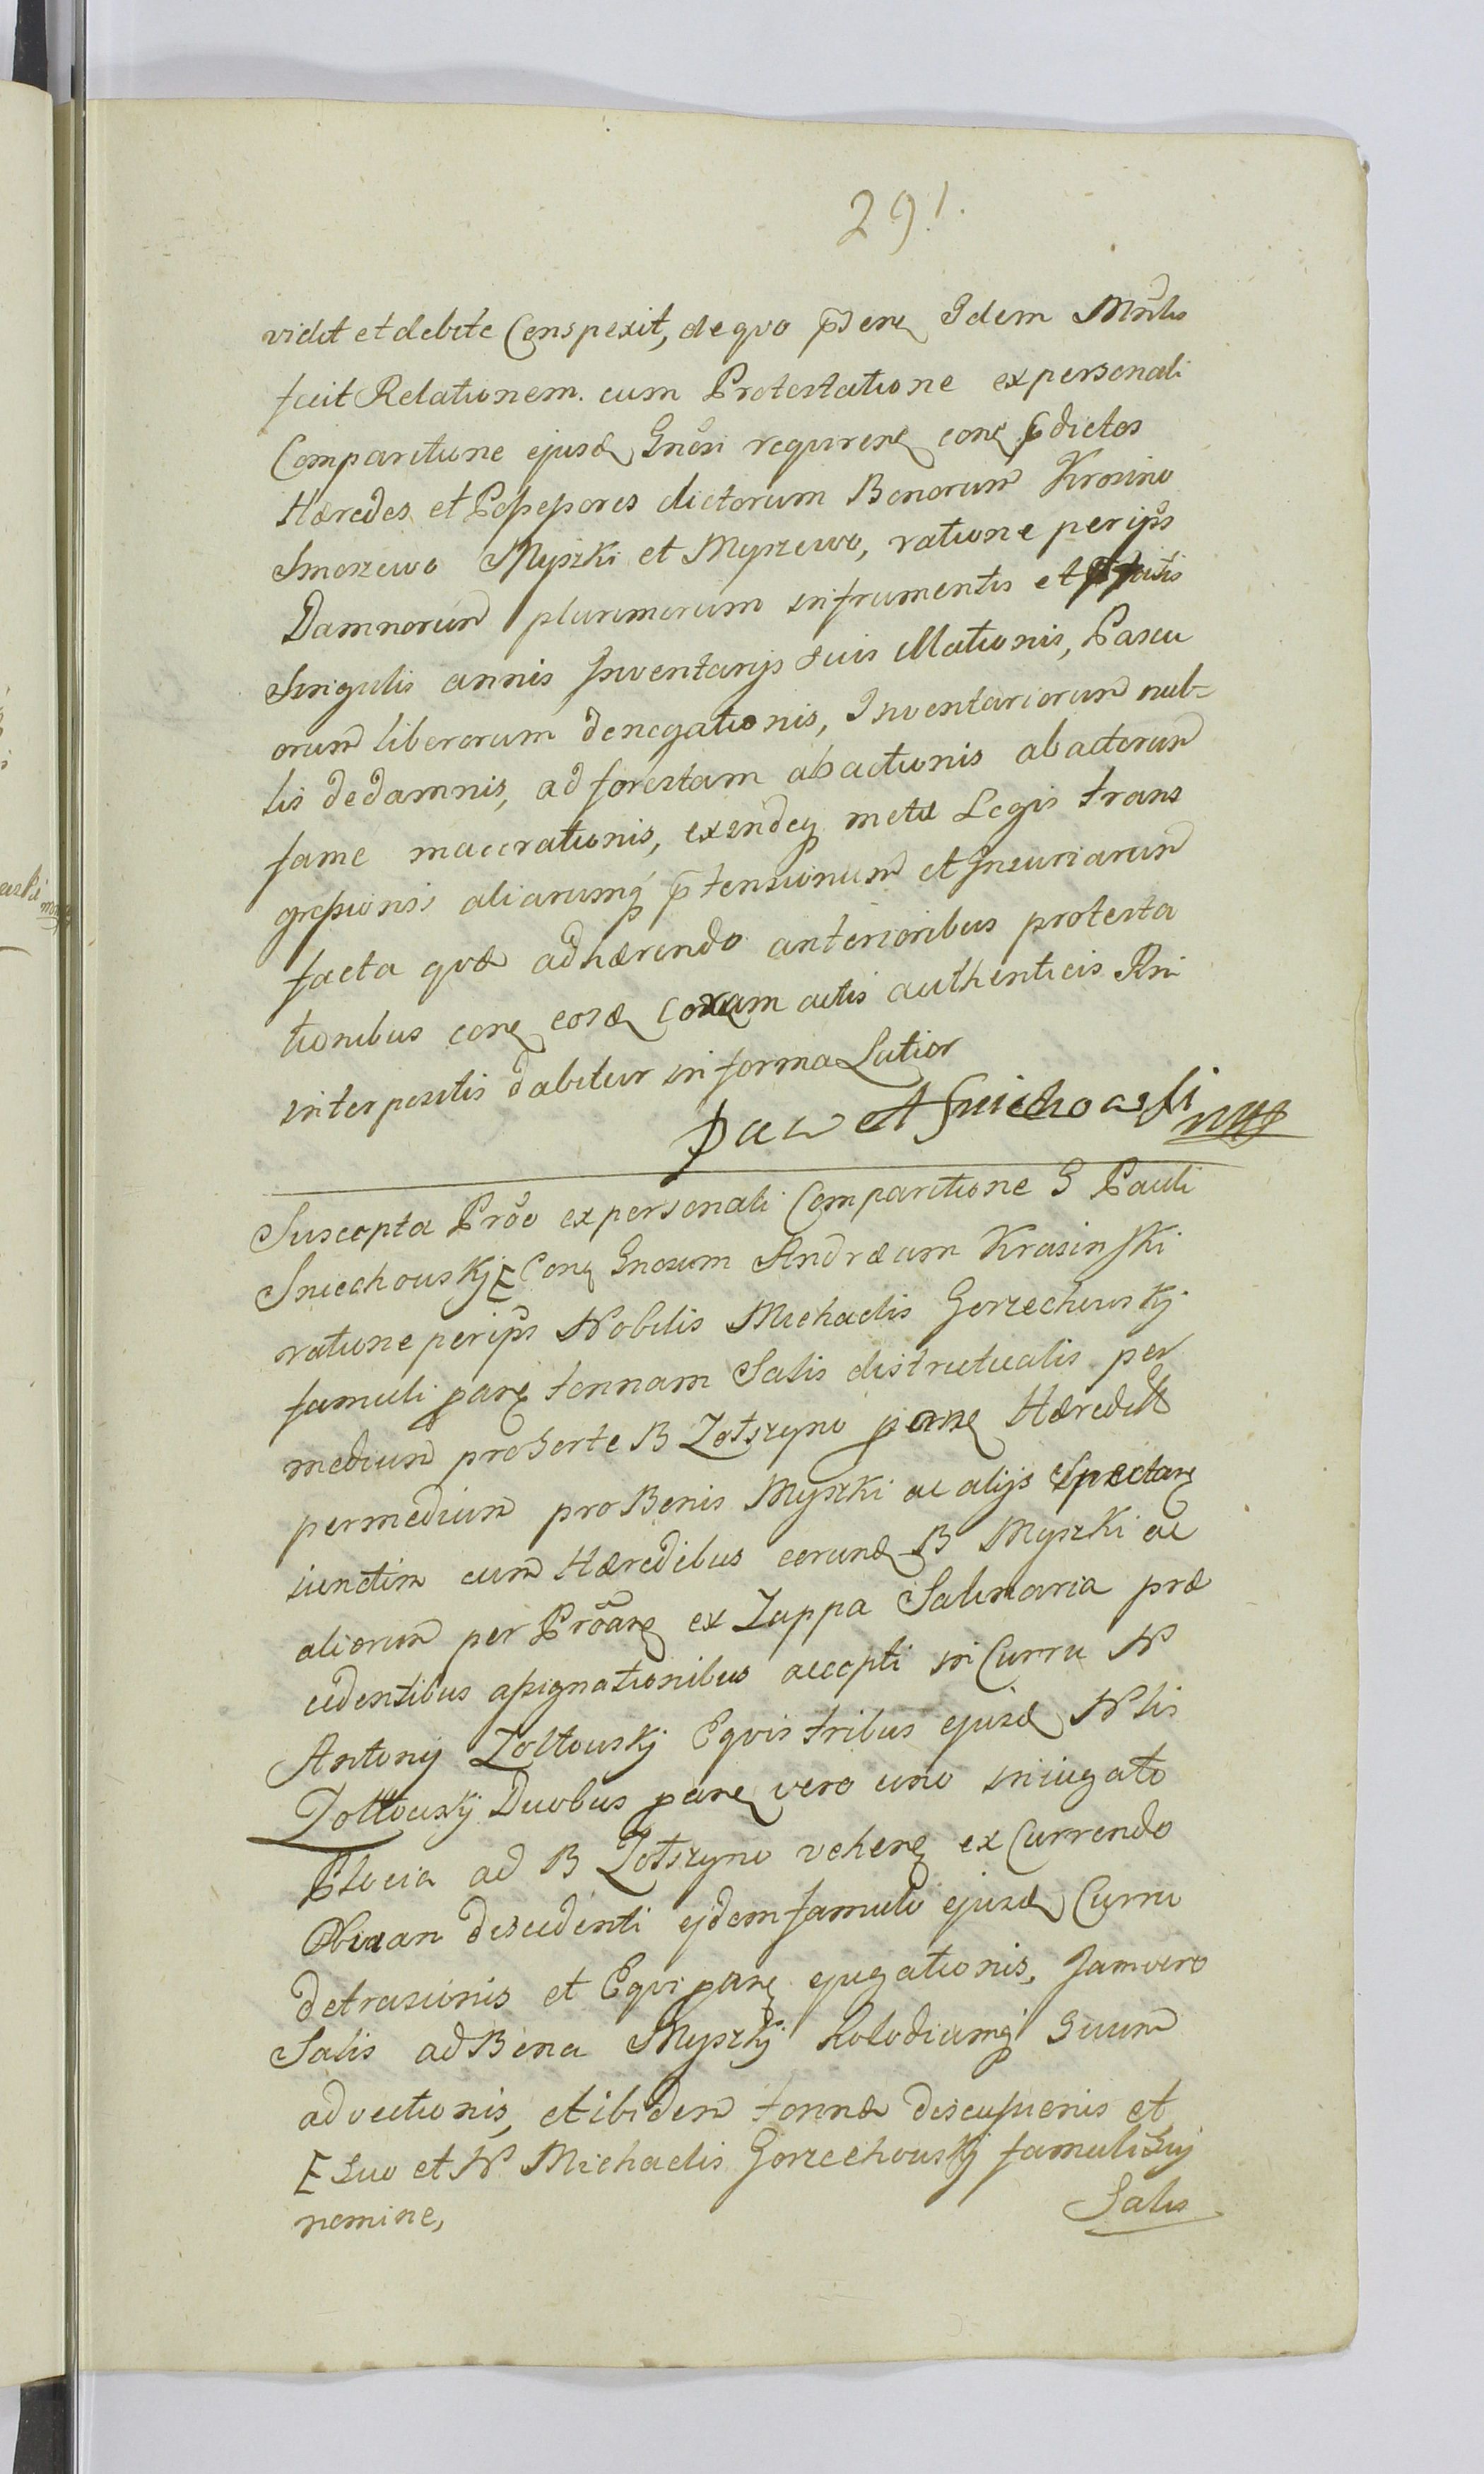 291.
vidit et debite Conspexit, de quo Idem Mrlis
fecit Relationem. cum Protestatione ex personali
Comparitione ejusd Gnosi requiren con dictos
Hæredes et Possessores dictorum Bonorum Krosino
Smoszewo Myszki et Myszewo, ratione per ips
Damnorum plurimorum in frumentis et
Singulis annis Inventarijs suis Illationis, Pascu
orum liberorum denegationis, Inventariorum nul-
lis de damnis, ad forestam abactionis abactorum
fame macerationis, exindeq metu Legis trans
gressionis aliarumq ptensionum et Iniuriarum
facta quæ adhærendo anterioribus protesta
tionibus con eosd Coram actis authenticis Rni
interpositis dabitur in forma Latior
Paweł Sniechowski mp
Suscepta Prõo ex personali Comparitione G Pauli
Sniechowskj Con Gnosum Andræam Krasinski
ratione per ips Nobilis Michaelis Gorzechowskj
famuli tonnam Salis districtualis per
medium pro Sorte B Zotszyno Hæredit
per medium pro Bonis Myszki ac alijs Spectan
iunctim cum Hæredibus eorund B Myszki ac
aliorum per Prõan ex Zuppa Salinaria præ
cedentibus assignationibus accepti in Curru N
Antonij Zołtowskj Equis tribus ejusd Nlis
Zołtowskj Duobus vero uno iniugato
Plocia ad B Zotszyno vehen ex Currendo
Obviam descedenti ejdem famulo ejusd Curru
detrusionis et Equi ejugationis, Jam vero
Salis ad Bona Myszkj Kolodiumq Suum
advectionis, et ibidem tonnæ discussionis et
E Suo et N Michaelis Gorzechowskj famuli Suj
nomine,
Salis